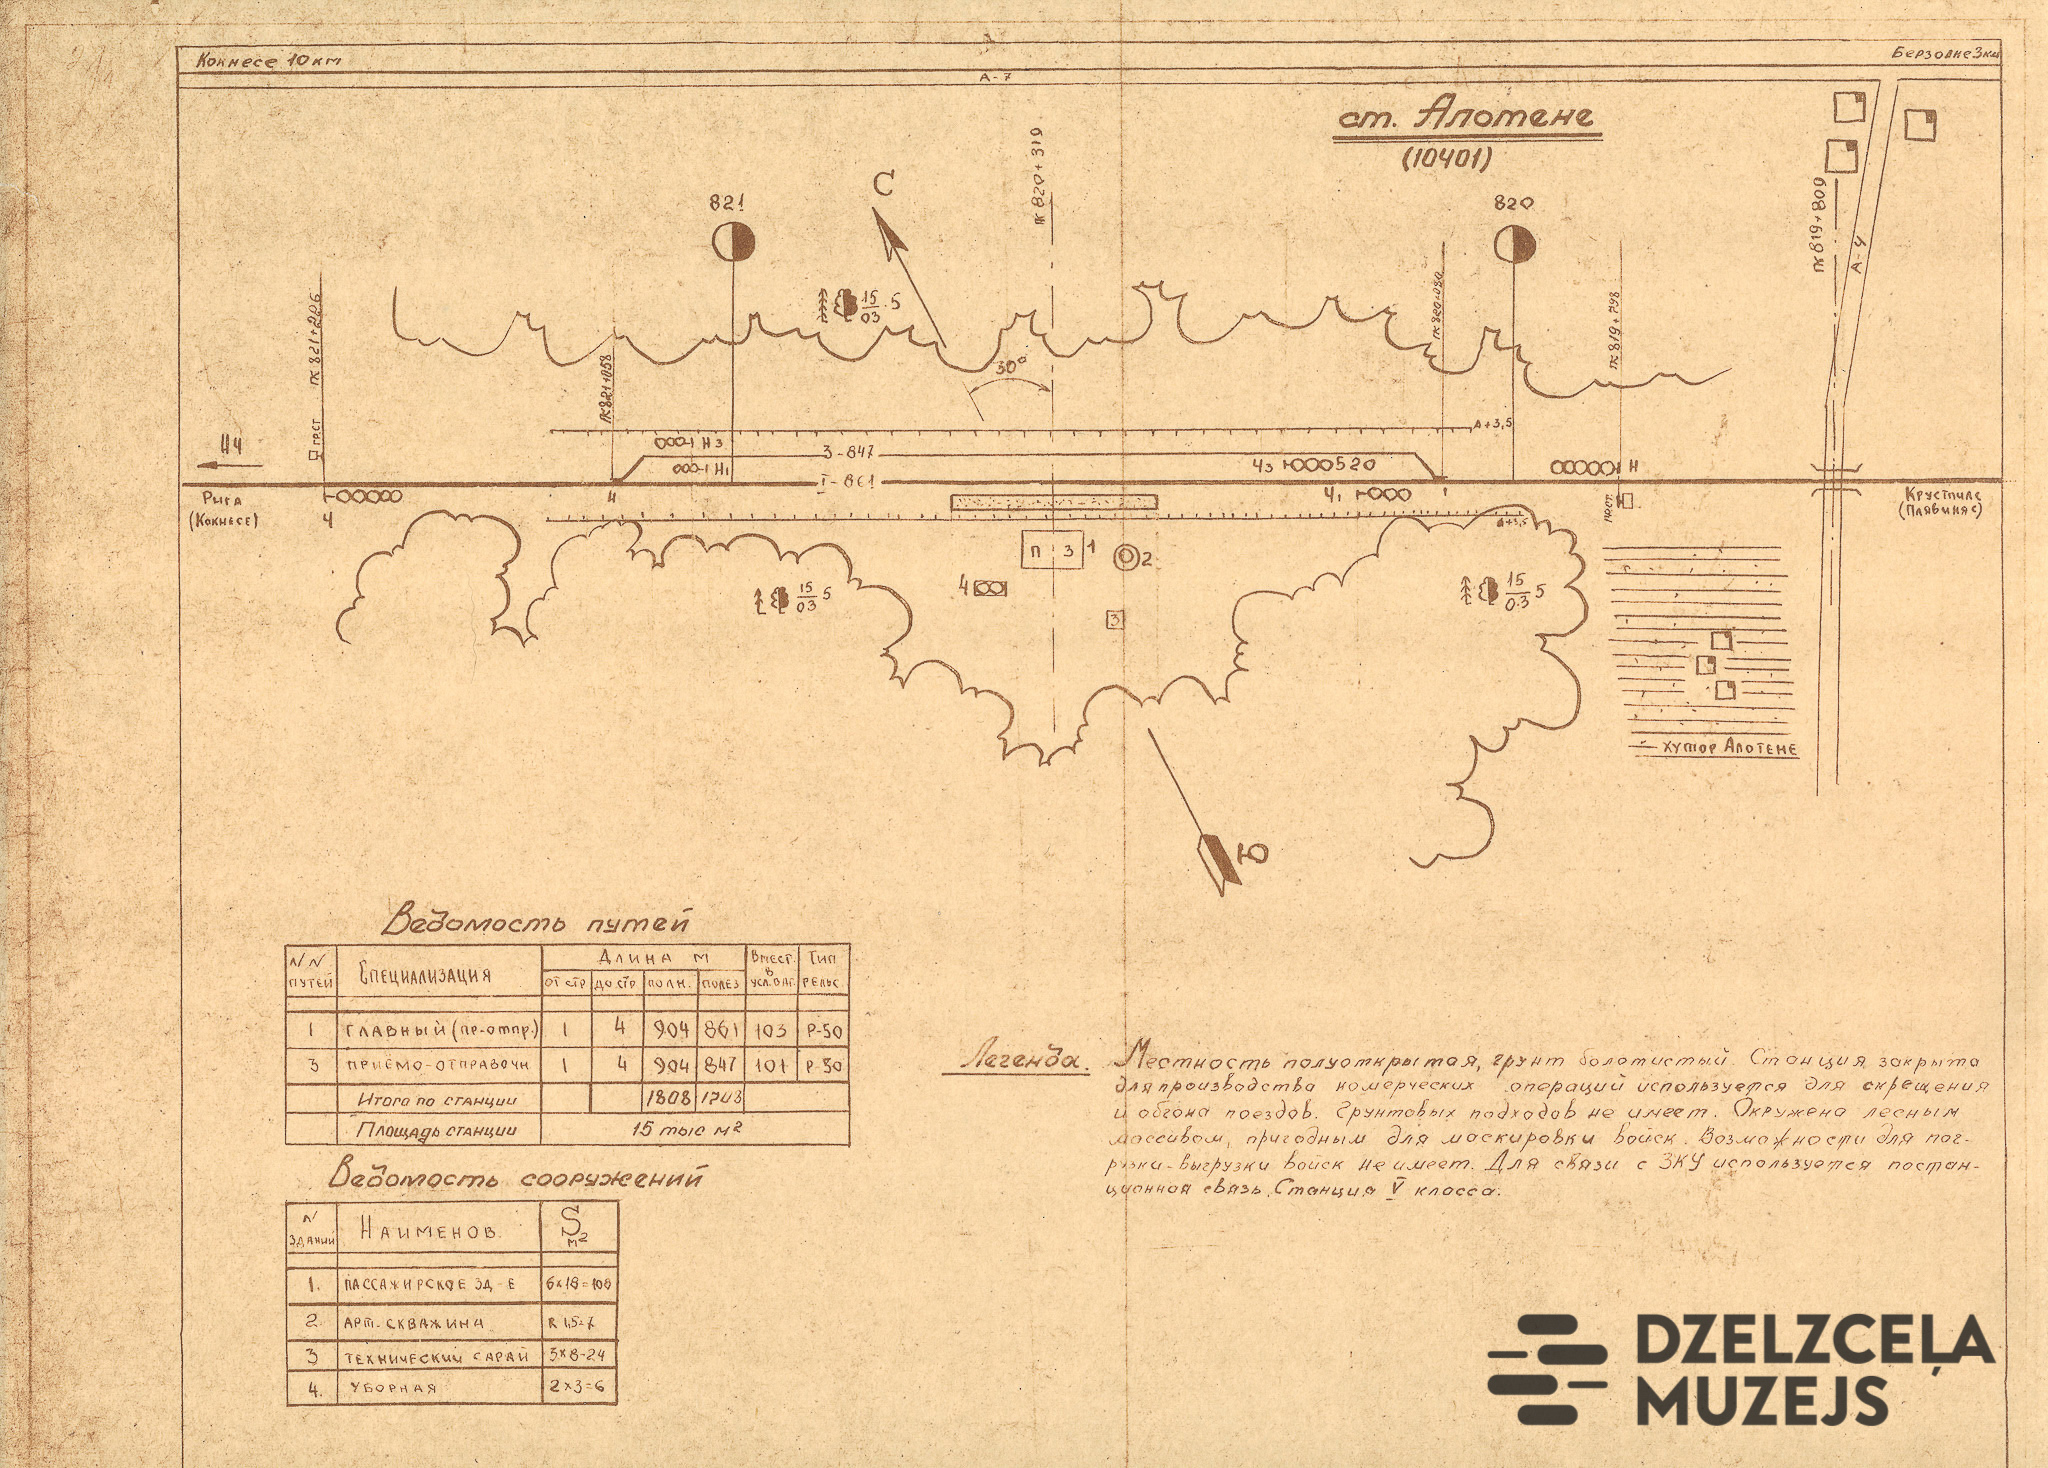 Кокнесе 10 км
Берзоли 3 км
А-7
ст. Алотене
(10401)
С
821
820
пк 820+319
пк 819+809
А-4
пк 821+226
пк 821+058
15
03
5
30°
пк 820+080
пк 819+798
А+3,5
НЧ
Н3
3-847
Н1
Ч3
520
Н
I-861
Ч1
II
I
Рига
(Кокнесе)
Ч
Крустпилс
(Плявиняс)
А+3,5
П З
1
2
4
3
15
03
5
15
0.3
5
хутор Алотене
Ю
Ведомость путей
NN путей
Специализация
Длина м
Вмест. в усл. ваг.
Тип рельс
от стр
до стр
полн.
полез
1 главный (пр-отпр.) 1 4 904 861 103 Р-50
3 приёмо-отправочн 1 4 904 847 101 Р-50
Итого по станции 1808 1708
Площадь станции 15 тыс м²
Ведомость сооружений
N зданий
Наименов.
S м²
1. пассажирское зд-е 6×18=108
2. арт. скважина R 1,5=7
3 технический сарай 3×8-24
4. уборная 2×3=6
Легенда. Местность полуоткрытая, грунт болотистый. Станция закрыта
для производства комерческих операций используется для скрещения
и обгона поездов. Грунтовых подходов не имеет. Окружена лесным
массивом, пригодным для маскировки войск. Возможности для пог-
рузки-выгрузки войск не имеет. Для связи с ЗКУ используется постан-
ционная связь. Станция V класса.
DZELZCEĻA
MUZEJS